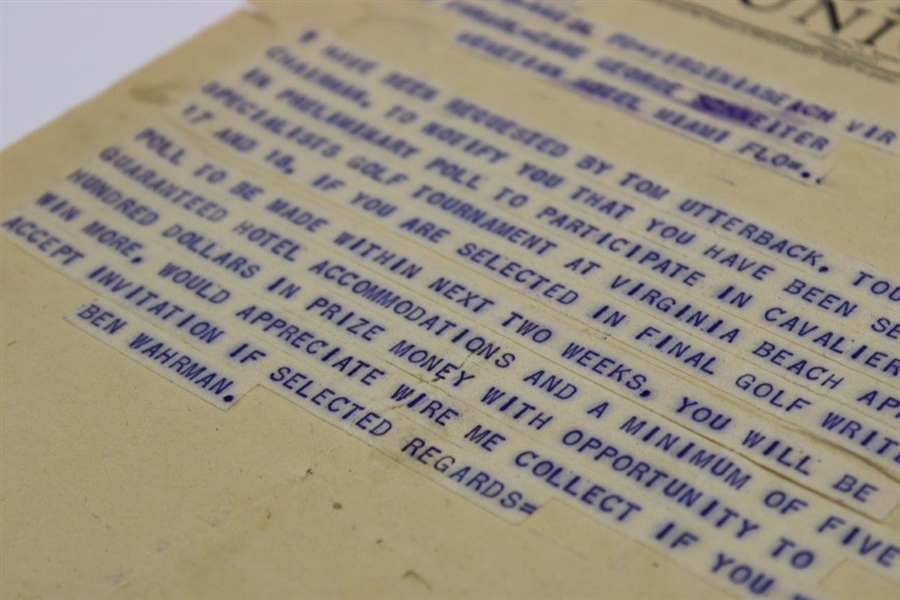 UNI
VIR
CARE GEORGE
MIAMI FLO=.
I HAVE BEEN REQUESTED BY TOM UTTERBACK, TOU
CHAIRMAN, TO NOTIFY YOU THAT YOU HAVE BEEN SE
IN PRELIMINARY POLL TO PARTICIPATE IN CAVALIER
SPECIALISTS GOLF TOURNAMENT AT VIRGINIA BEACH APR
17 AND 18. IF YOU ARE SELECTED IN FINAL GOLF WRITE
POLL TO BE MADE WITHIN NEXT TWO WEEKS, YOU WILL BE
GUARANTEED HOTEL ACCOMMODATIONS AND A MINIMUM OF FIVE
HUNDRED DOLLARS IN PRIZE MONEY WITH OPPORTUNITY TO
WIN MORE, WOULD APPRECIATE WIRE ME COLLECT IF YOU
ACCEPT INVITATION IF SELECTED REGARDS=
BEN WAHRMAN.